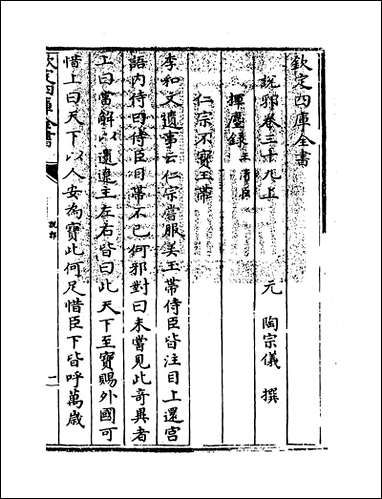 欽定四庫全書
說郛卷三十九上
元　陶宗儀　撰
揮麈錄　王清臣
仁宗不寶玉帶
李和文遺事云仁宗嘗服美玉帶侍臣皆注目上還宮
語内侍曰侍臣目帶不已何邪對曰未嘗見此奇異者
上曰當解以遺遼主左右皆曰此天下至寶賜外國可
惜上曰天下以人安為寶此何足惜臣下皆呼萬歳
欽定四庫全書
說郛